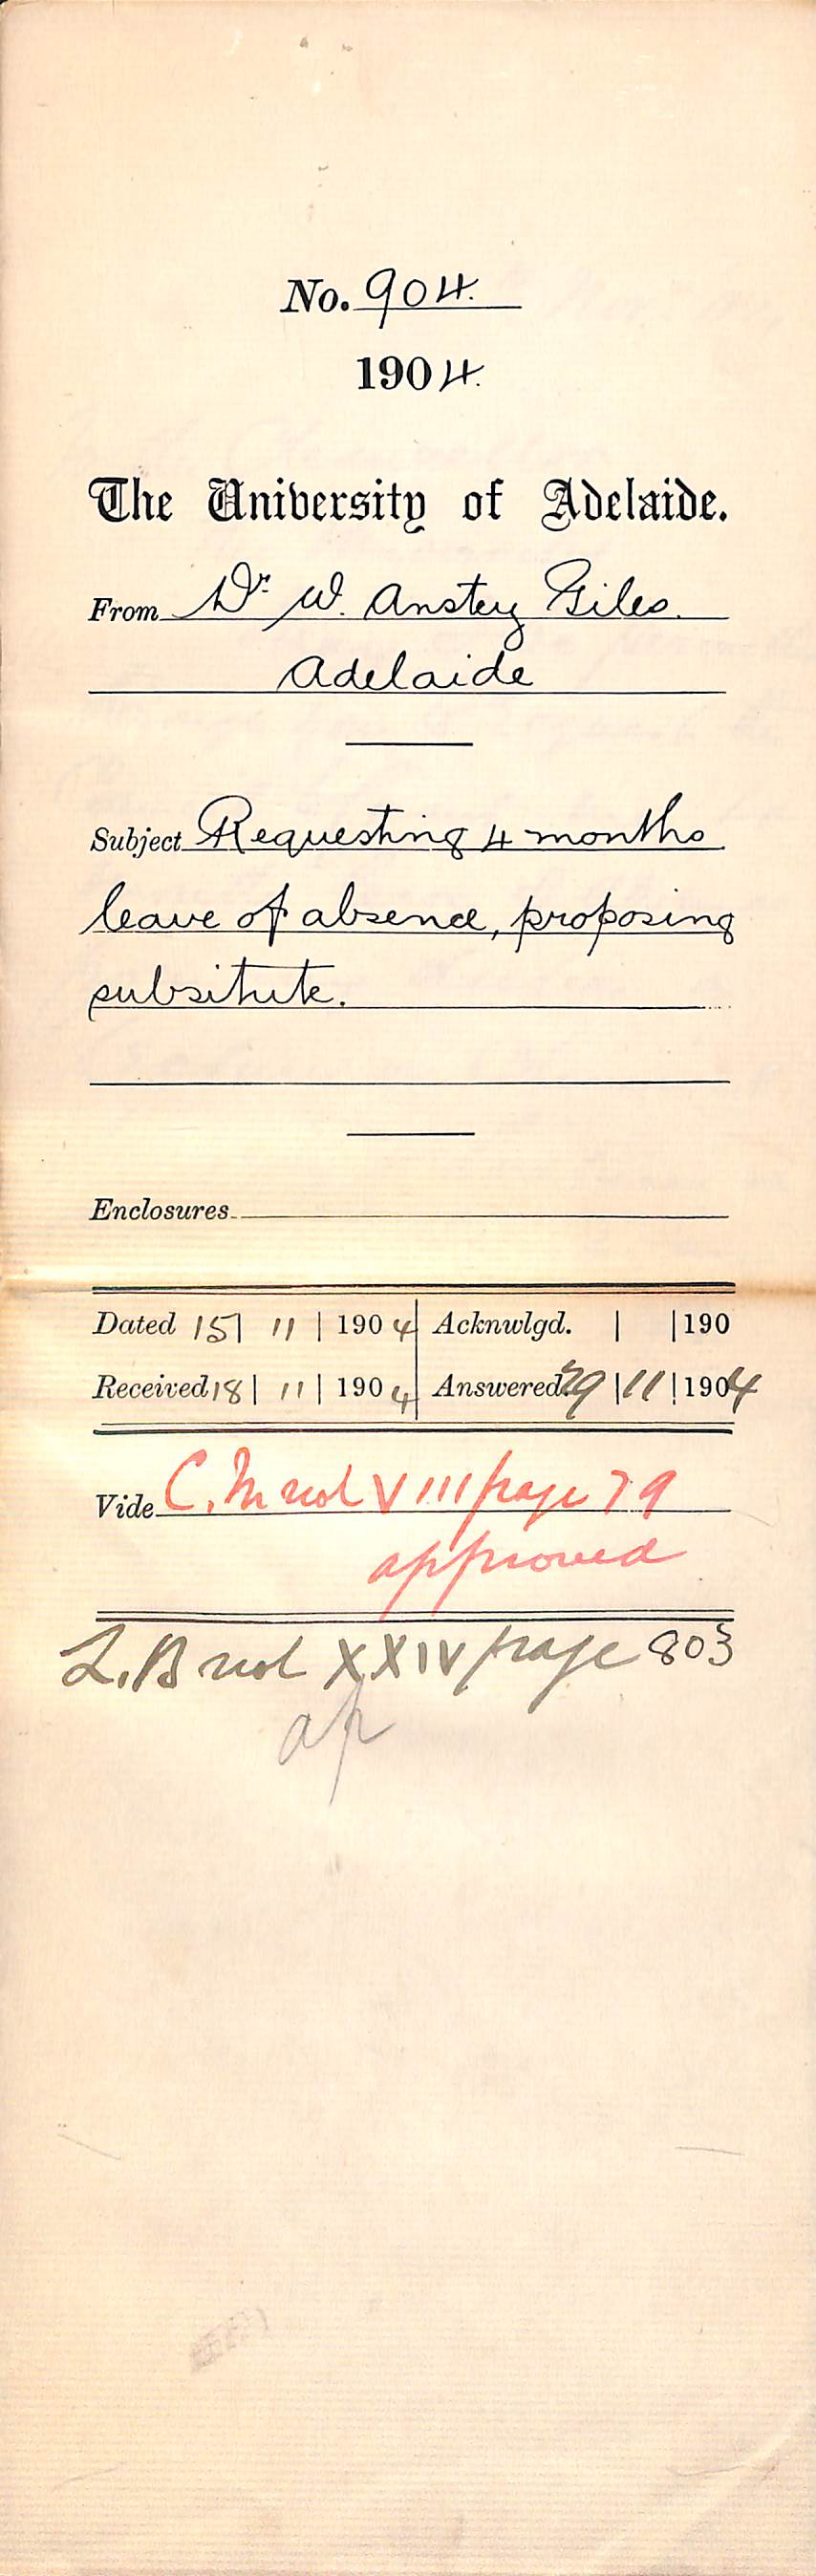 No. 904.
1904.
The University of Adelaide.
From Dr W. Anstey Giles.
Adelaide
Subject Requesting 4 months
leave of absence, proposing
subsitute.
Enclosures
Dated 15 | 11 | 1904 Acknwlgd. | | 190
Received 18 | 11 | 1904 Answered 29 | 11 | 1904
Vide C.M vol VIII page 79
approved
L.B vol XXIV page 803